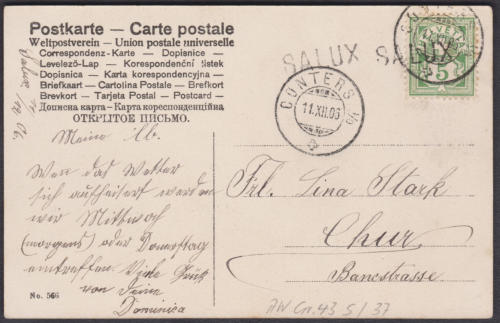 Postkarte — Carte postale
Weltpostverein – Union postale universelle
Correspondenz-Karte – Dopisnice
Levelező-Lap – Korespondenční lístek
Dopisnica – Karta korespondencyjna
Briefkaart – Cartolina Postale – Brefkort
Brevkort – Tarjeta Postal – Postcard
Дописна карта – Карта кореспонденційна
ОТКРЫТОЕ ПИСЬМО.
Salux
SALUX SALUX
HELVETIA
5
CONTERS
11.XII.06
Meine
Wen das Wetter
sich aufheitert werden
wir Mittwoch
(morgens) oder Donnstag
eintreffen. Viele Grüß
von Deine
Dominica
Frl. Lina Stark
Chur
Banestrasse
No. 566
S / 37